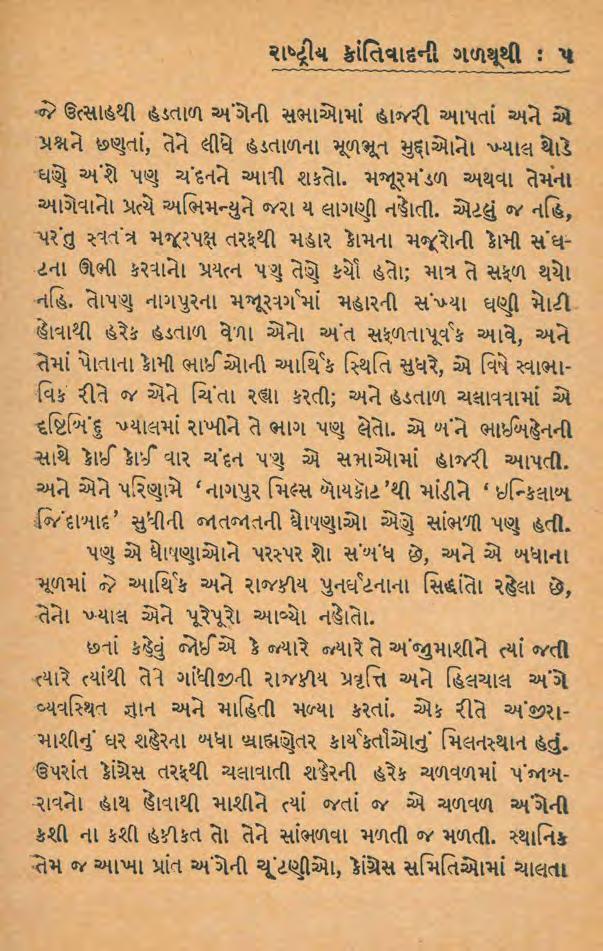 રાષ્ટ્રીય ક્રાંતિવાદની ગળથૂથી : ૫
જે ઉત્સાહથી હડતાળ અંગેની સભાઓમાં હાજરી આપતાં અને એ
પ્રશ્નને છણતાં, તેને લીધે હડતાળના મૂળભૂત મુદ્દાઓનો ખ્યાલ થોડે
ઘણે અંશે પણ ચંદનને આવી શકતો. મજૂરમંડળ અથવા તેમના
આગેવાનો પ્રત્યે અભિમન્યુને જરા ય લાગણી નહોતી. એટલું જ નહિ,
પરંતુ સ્વતંત્ર મજૂરપક્ષ તરફથી મહાર કોમના મજૂરોની કોમી સંઘ-
ટના ઊભી કરવાનો પ્રયત્ન પણ તેણે કર્યો હતો; માત્ર તે સફળ થયો
નહિ. તોપણ નાગપુરના મજૂરવર્ગમાં મહારની સંખ્યા ઘણી મોટી
હોવાથી હરેક હડતાળ વેળા એનો અંત સફળતાપૂર્વક આવે, અને
તેમાં પોતાના કોમી ભાઈઓની આર્થિક સ્થિતિ સુધરે, એ વિષે સ્વાભા-
વિક રીતે જ એને ચિંતા રહ્યા કરતી; અને હડતાળ ચલાવવામાં એ
દૃષ્ટિબિંદુ ખ્યાલમાં રાખીને તે ભાગ પણ લેતો. એ બંને ભાઈબહેનની
સાથે કોઈ કોઈ વાર ચંદન પણ એ સભાઓમાં હાજરી આપતી.
અને એને પરિણામે ‘નાગપુર મિલ્સ બૉયકૉટ’થી માંડીને ‘ઇન્કિલાબ
ઝિંદાબાદ’ સુધીની જાતજાતની ઘોષણાઓ એણે સાંભળી પણ હતી.
પણ એ ઘોષણાઓને પરસ્પર શો સંબંધ છે, અને એ બધાના
મૂળમાં જે આર્થિક અને રાજકીય પુનર્ઘટનાના સિદ્ધાંતો રહેલા છે,
તેનો ખ્યાલ એને પૂરેપૂરો આવ્યો નહોતો.
છતાં કહેવું જોઈએ કે જ્યારે જ્યારે તે અંજીમાશીને ત્યાં જતી
ત્યારે ત્યાંથી તેને ગાંધીજીની રાજકીય પ્રવૃત્તિ અને હિલચાલ અંગે
વ્યવસ્થિત જ્ઞાન અને માહિતી મળ્યા કરતાં. એક રીતે અંજીરા-
માશીનું ઘર શહેરના બધા બ્રાહ્મણેતર કાર્યકર્તાઓનું મિલનસ્થાન હતું.
ઉપરાંત કોંગ્રેસ તરફથી ચલાવાતી શહેરની હરેક ચળવળમાં પંજાબ-
રાવનો હાથ હોવાથી માશીને ત્યાં જતાં જ એ ચળવળ અંગેની
કશી ના કશી હકીકત તો તેને સાંભળવા મળતી જ મળતી. સ્થાનિક
તેમ જ આખા પ્રાંત અંગેની ચૂંટણીઓ, કોંગ્રેસ સમિતિઓમાં ચાલતા